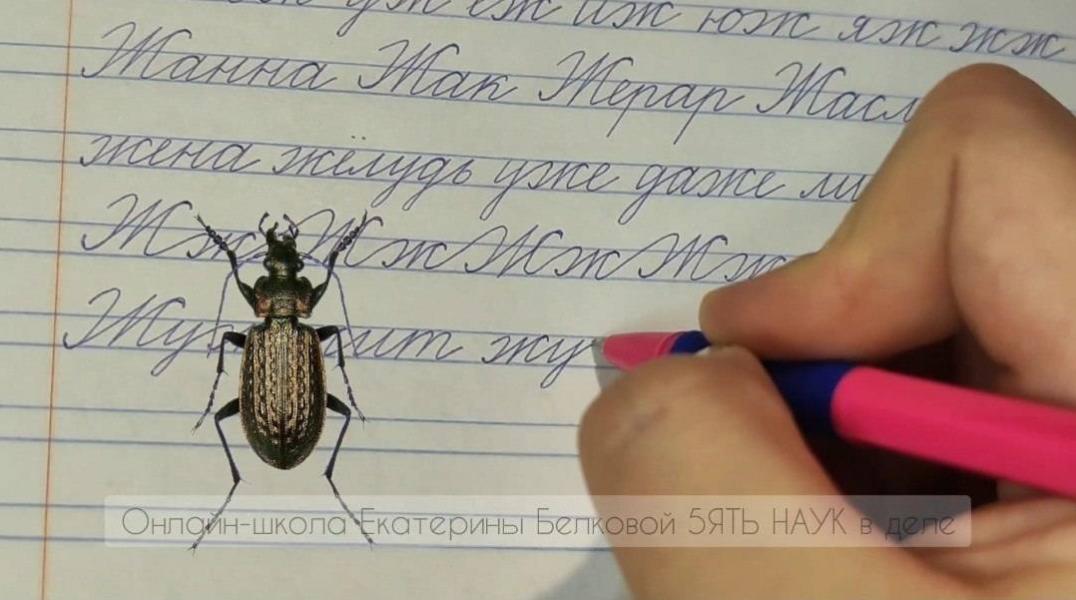 уж еж иж юж яж жж
Жанна Жак Жерар
жена жёлудь уже даже
Жж Жж Жж Жж
жу
Онлайн-школа Екатерины Белковой 5ЯТЬ НАУК в деле